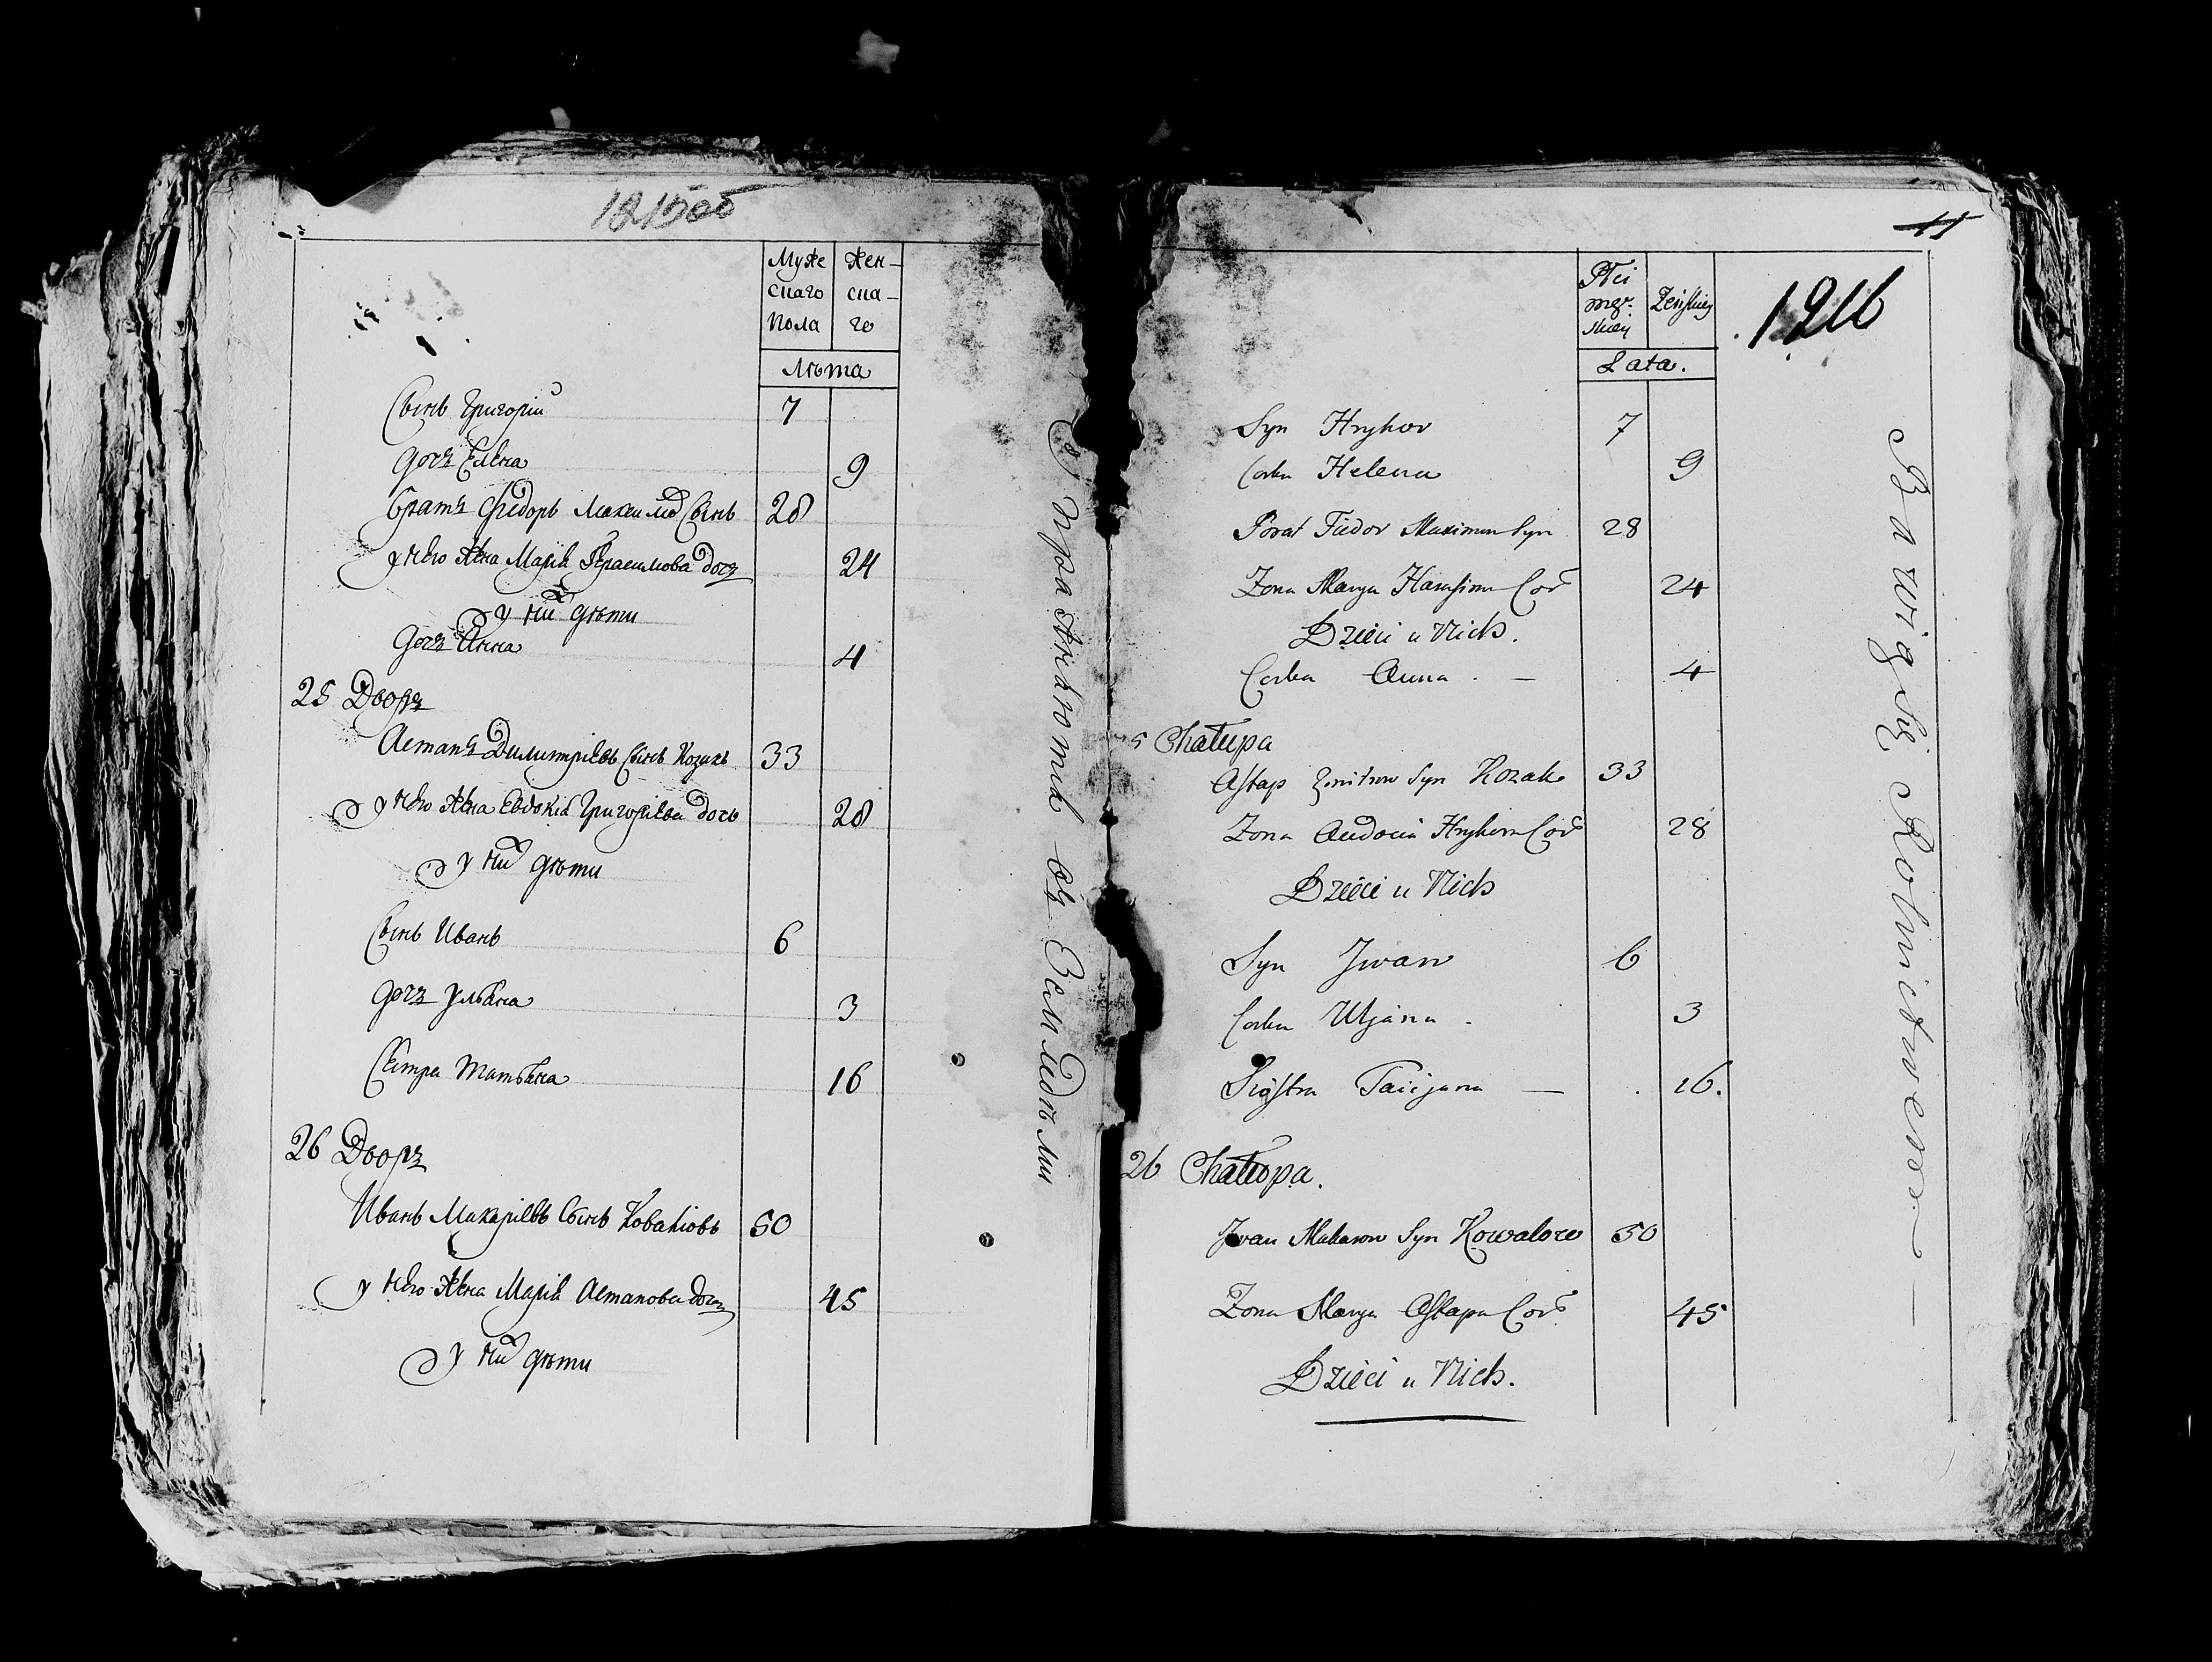 1215 об
Муже Жен-
скаго ска-
пола го
Лѣта
Сынъ Григорій 7
дочъ Елена 9
Братъ Ѳедоръ Максимо Сынъ 28
у него жена Марія Герасимова дочъ 24
у ни дѣти
дочъ Анна 4
25 Дворъ
Астапъ Димитріевъ Сынъ Козакъ 33
у него жена Евдокія Григоріева дочь 28
у ни дѣти
Сынъ Иванъ 6
дочъ Ульяна 3
Сестра Татьяна 16
26 Дворъ
Иванъ Макаріевъ Сынъ Ковалювъ 50
у него жена Марія Астапова дочъ 45
у ни дѣти
Упражняются въ Земледѣліи
11
1216
Płci
męz- Zeńskiey
skiey
Lata.
Syn Hryhor 7
Corka Helena 9
Brat Fiedor Maximow Syn 28
Zona Marya Harasimow Cor 24
Dzieci u Nich.
Corka Anna . — . 4
5 Chałupa
Astap Zmitrow Syn Kozak 33
Zona Audocia Hryhorow Cor 28
Dzieci u Nich
Syn Jwan 6
Corka Uljana . 3
Siostra Taicjana — . 16.
26 Chałupa.
Jwan Makarow Syn Kowalow 50
Zona Marya Astapa Cor 45
Dzieci u Nich.
Bawią Się Rolnictwem —